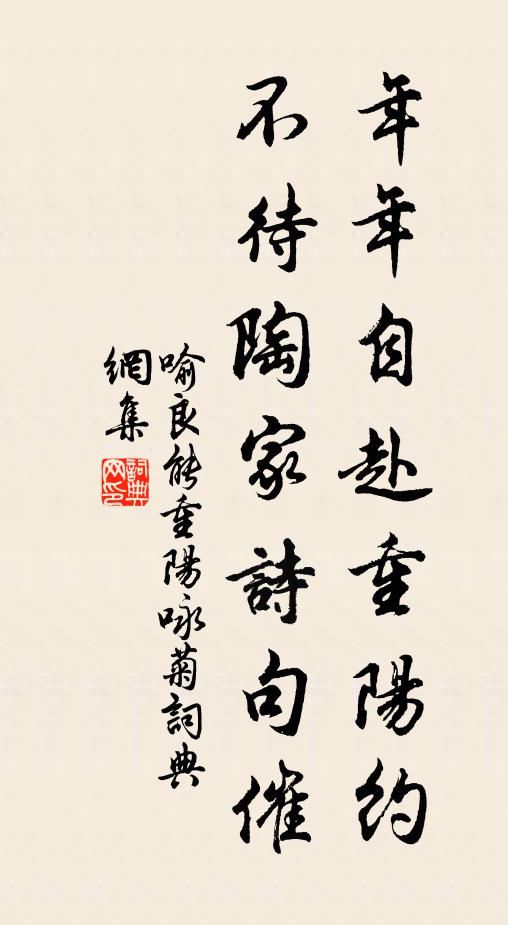 年年自赴重陽約
不待陶家詩句催
喻良能重陽咏菊詞典
網集
詞典
网印